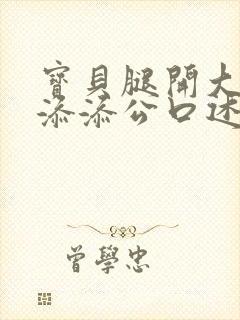 寶貝腿開大
添添公口述
曾學忠